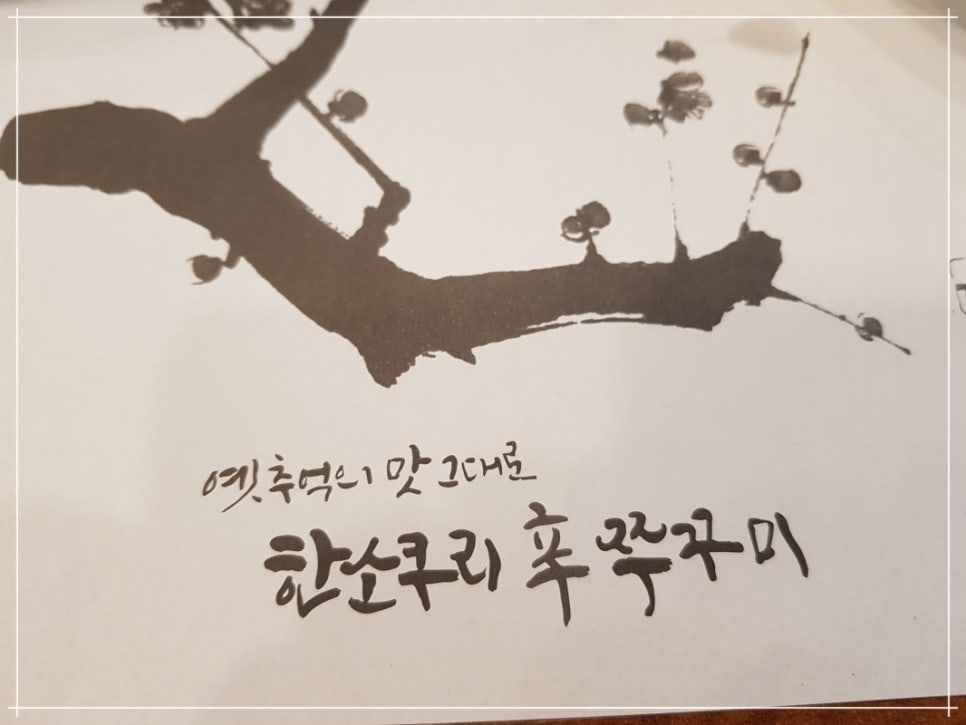 옛추억의 맛 그대로
한소쿠리 辛 쭈꾸미